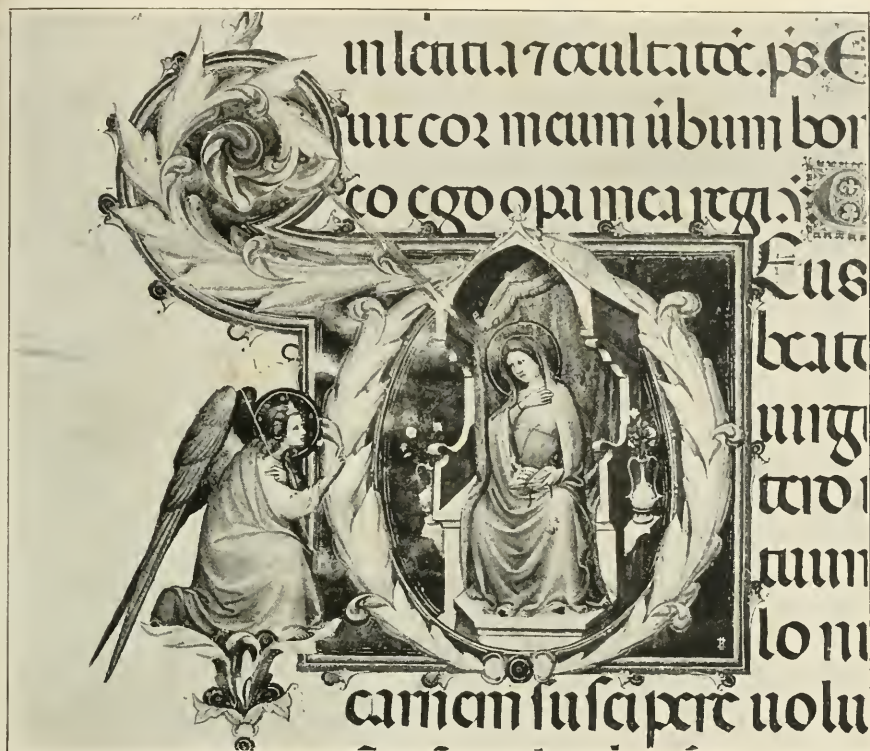 in letitia ⁊ exultatōe. p̄s. E
uit cor meum ūbum bon
co ego oꝑa mea regi. ℣ E
Eus
beate
uirgi
tero
tuum
lo n
carnem suscipere uolu